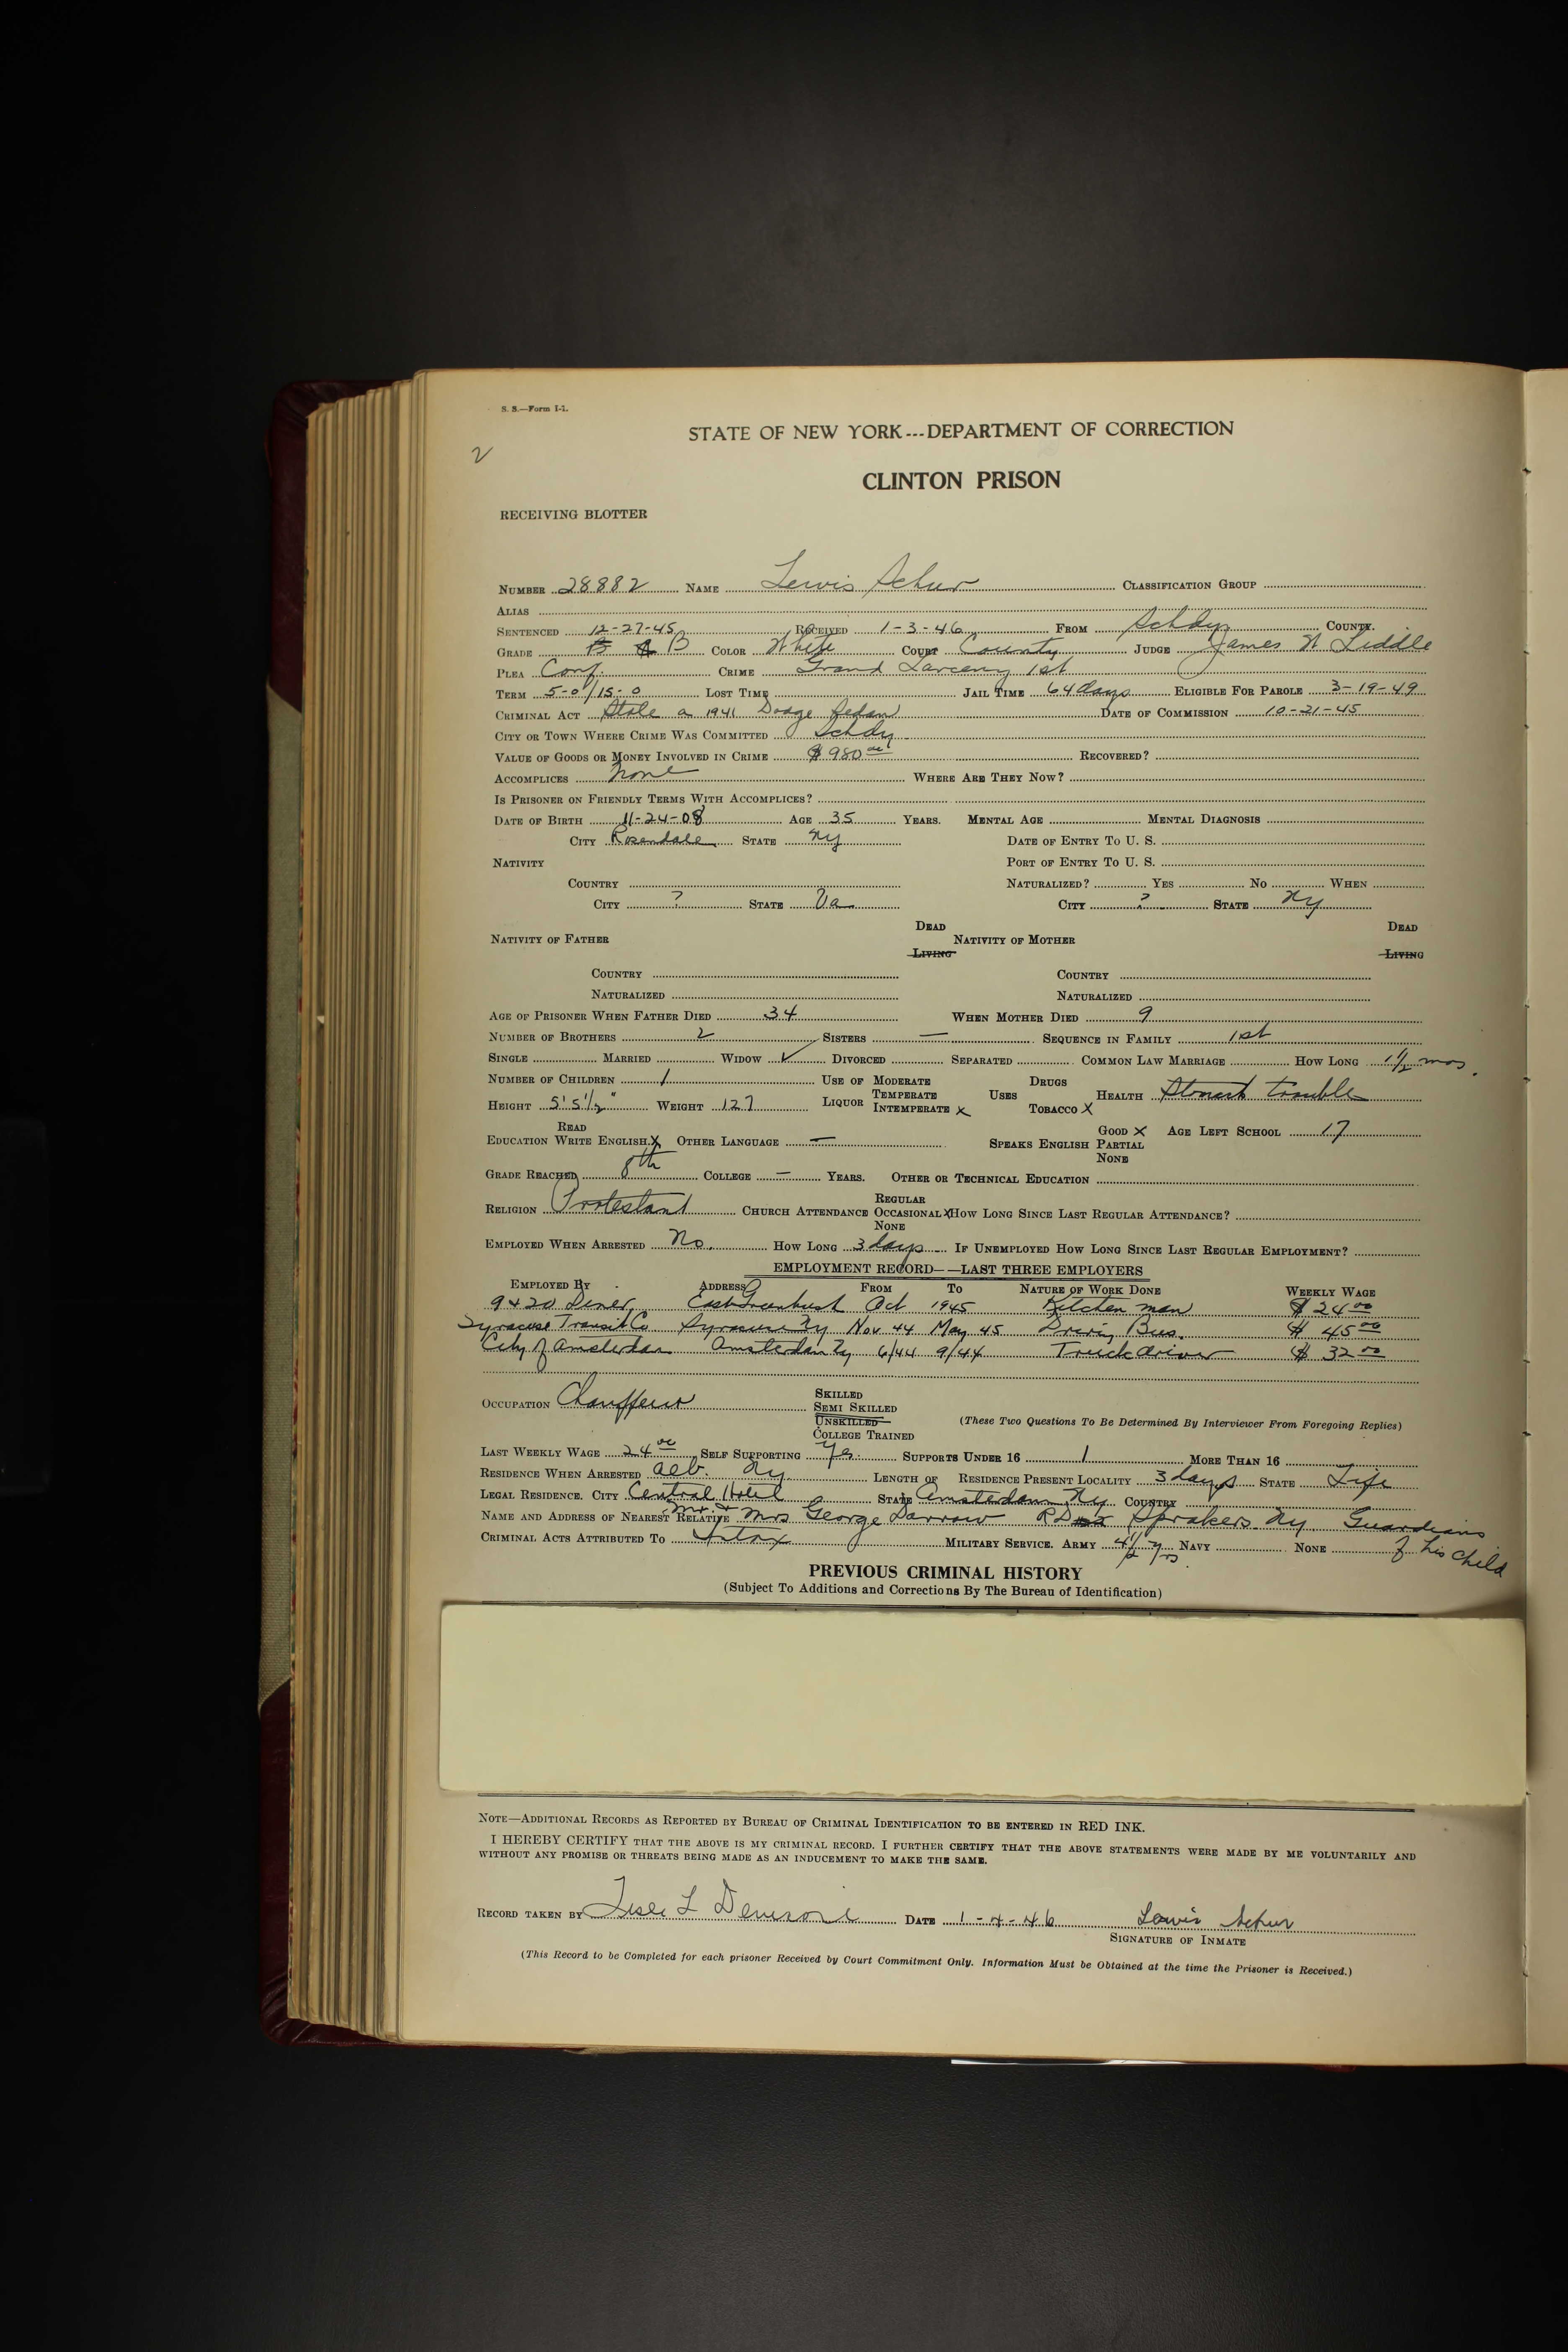 S. S.—Form I-1.
2
STATE OF NEW YORK---DEPARTMENT OF CORRECTION
CLINTON PRISON
RECEIVING BLOTTER
NUMBER 28882 NAME Lewis Schur CLASSIFICATION GROUP
ALIAS
SENTENCED 12-27-45 RECEIVED 1-3-46 FROM Schdy COUNTY.
GRADE B A B COLOR White COURT County JUDGE James W Liddle
PLEA Conf. CRIME Grand Larceny 1st
TERM 5-0/15-0 LOST TIME JAIL TIME 64 days ELIGIBLE FOR PAROLE 3-19-49
CRIMINAL ACT Stole a 1941 Dodge Sedan DATE OF COMMISSION 10-21-45
CITY OR TOWN WHERE CRIME WAS COMMITTED Schdy
VALUE OF GOODS OR MONEY INVOLVED IN CRIME $980 00 RECOVERED?
ACCOMPLICES None WHERE ARE THEY NOW?
IS PRISONER ON FRIENDLY TERMS WITH ACCOMPLICES?
DATE OF BIRTH 11-24-08 AGE 35 YEARS. MENTAL AGE MENTAL DIAGNOSIS
CITY Rosendale STATE Ny DATE OF ENTRY TO U. S.
NATIVITY PORT OF ENTRY TO U. S.
COUNTRY NATURALIZED? YES NO WHEN
CITY ? STATE Va CITY ? STATE Ny
DEAD DEAD
NATIVITY OF FATHER LIVING NATIVITY OF MOTHER LIVING
COUNTRY COUNTRY
NATURALIZED NATURALIZED
AGE OF PRISONER WHEN FATHER DIED 34 WHEN MOTHER DIED 9
NUMBER OF BROTHERS 2 SISTERS — SEQUENCE IN FAMILY 1st
SINGLE MARRIED WIDOW ✓ DIVORCED SEPARATED COMMON LAW MARRIAGE HOW LONG 1 1/2 mos.
NUMBER OF CHILDREN 1 USE OF MODERATE DRUGS
HEIGHT 5' 5 1/2" WEIGHT 127 LIQUOR TEMPERATE INTEMPERATE X USES TOBACCO X HEALTH Stomach trouble
READ GOOD X AGE LEFT SCHOOL 17
EDUCATION WRITE ENGLISH X OTHER LANGUAGE — SPEAKS ENGLISH PARTIAL
NONE
GRADE REACHED 8th COLLEGE — YEARS. OTHER OR TECHNICAL EDUCATION
REGULAR
RELIGION Protestant CHURCH ATTENDANCE OCCASIONAL X HOW LONG SINCE LAST REGULAR ATTENDANCE?
NONE
EMPLOYED WHEN ARRESTED No. HOW LONG 3 days IF UNEMPLOYED HOW LONG SINCE LAST REGULAR EMPLOYMENT?
EMPLOYMENT RECORD——LAST THREE EMPLOYERS
EMPLOYED BY ADDRESS FROM TO NATURE OF WORK DONE WEEKLY WAGE
9 & 20 Diner East Greenbush Oct 1945 Kitchen man $ 24 00
Syracuse Transit Co Syracuse Ny Nov 44 May 45 Driving Bus. $ 45 00
City of Amsterdam Amsterdam Ny 6/44 9/44 Truck driver $ 32 00
SKILLED
OCCUPATION Chauffeur SEMI SKILLED
UNSKILLED (These Two Questions To Be Determined By Interviewer From Foregoing Replies)
COLLEGE TRAINED
LAST WEEKLY WAGE 24 00 SELF SUPPORTING Yes SUPPORTS UNDER 16 1 MORE THAN 16
RESIDENCE WHEN ARRESTED Alb. Ny LENGTH OF RESIDENCE PRESENT LOCALITY 3 days STATE Life
LEGAL RESIDENCE. CITY Central Hotel STATE Amsterdam Ny COUNTRY
NAME AND ADDRESS OF NEAREST RELATIVE Mr. & Mrs George Darrow RD Sprakers Ny Guardians
CRIMINAL ACTS ATTRIBUTED TO Intox MILITARY SERVICE. ARMY 4 1/2 yrs NAVY NONE of his child
PREVIOUS CRIMINAL HISTORY
(Subject To Additions and Corrections By The Bureau of Identification)
NOTE—ADDITIONAL RECORDS AS REPORTED BY BUREAU OF CRIMINAL IDENTIFICATION TO BE ENTERED IN RED INK.
I HEREBY CERTIFY THAT THE ABOVE IS MY CRIMINAL RECORD. I FURTHER CERTIFY THAT THE ABOVE STATEMENTS WERE MADE BY ME VOLUNTARILY AND
WITHOUT ANY PROMISE OR THREATS BEING MADE AS AN INDUCEMENT TO MAKE THE SAME.
RECORD TAKEN BY L Denesone DATE 1-4-46 Lewis Schur
SIGNATURE OF INMATE
(This Record to be Completed for each prisoner Received by Court Commitment Only. Information Must be Obtained at the time the Prisoner is Received.)